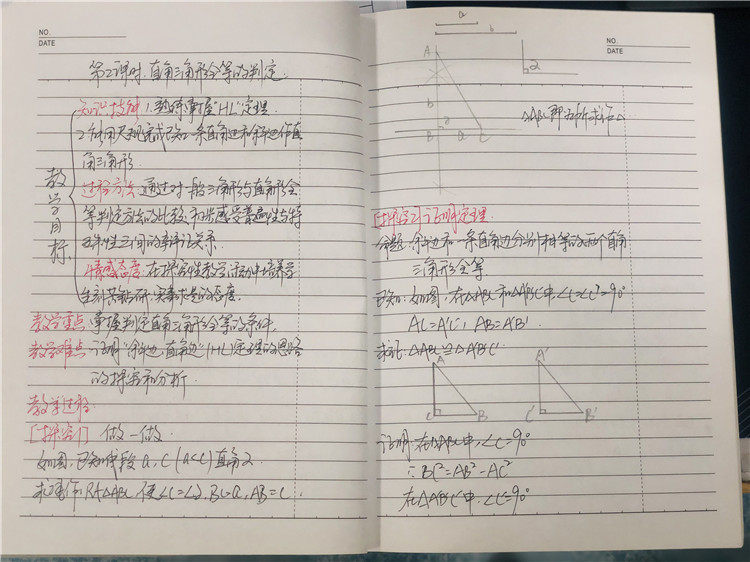 NO.
DATE
第2课时 直角三角形全等的判定
教学目标
知识技能 1.熟练掌握"HL"定理
2.利用尺规完成已知一条直角边和斜边作直
角三角形
过程方法 通过对一般三角形与直角形全
等判定方法的比较,初步感受普遍性与特
殊性之间的辩证关系.
情感态度:在探究性教学活动中培养学
生刻苦钻研,实事求是的态度.
教学重点 掌握判定直角三角形全等的条件.
教学难点 证明"斜边,直角边"(HL)定理的思路
的探究和分析
教学过程
[探究1] 做一做
如图,已知线段a,c(a<c)直角α
求作:Rt△ABC 使∠C=∠α,BC=a,AB=c.
NO.
DATE
a
b
A
α
b
a
C
△ABC即为所求作△
[探究2]证明定理
命题:斜边和一条直角边分别相等的两个直角
三角形全等
已知:如图,在△ABC和△A'B'C'中,∠C=∠C'=90°
AC=A'C', AB=A'B'.
求证:△ABC≌△A'B'C'
A
A'
C
B
C'
B'
证明:在△ABC中,∠C=90°
∴BC²=AB²-AC²
在△A'B'C'中,∠C'=90°